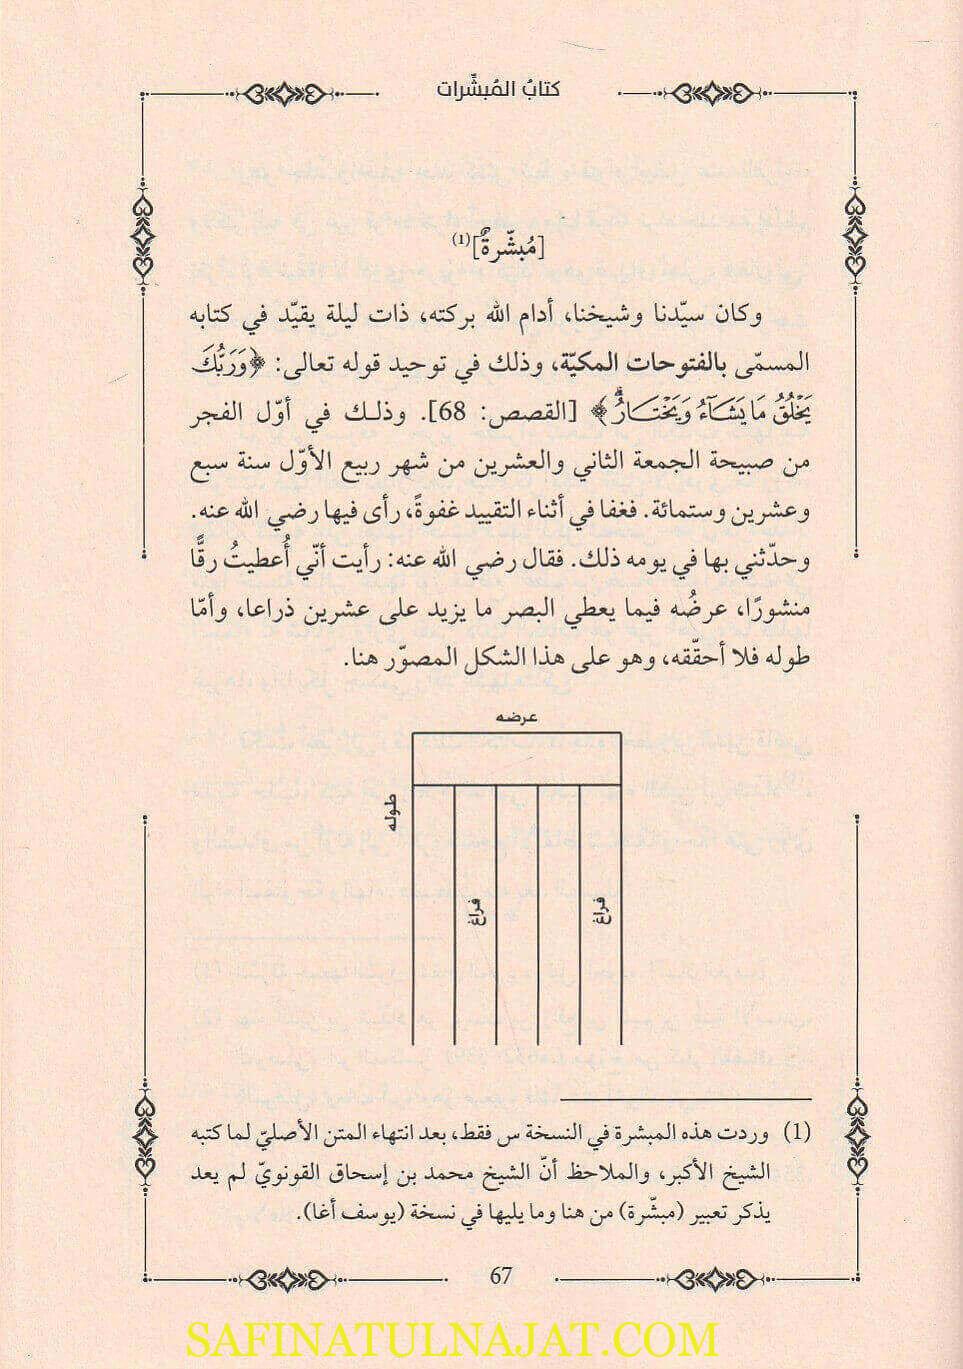 كتابُ المُبشِّرات
[مُبشّرةٌ](1)
وكان سيّدنا وشيخنا، أدام الله بركته، ذات ليلة يقيّد في كتابه
المسمّى بالفتوحات المكيّة، وذلك في توحيد قوله تعالى: ﴿وَرَبُّكَ
يَخْلُقُ مَا يَشَآءُ وَيَخْتَارُۗ﴾ [القصص: 68]. وذلك في أوّل الفجر
من صبيحة الجمعة الثاني والعشرين من شهر ربيع الأوّل سنة سبع
وعشرين وستمائة. فغفا في أثناء التقييد غفوةً، رأى فيها رضي الله عنه.
وحدّثني بها في يومه ذلك. فقال رضي الله عنه: رأيت أنّي أُعطيتُ رقًّا
منشورًا، عرضُه فيما يعطي البصر ما يزيد على عشرين ذراعا، وأمّا
طوله فلا أحقّقه، وهو على هذا الشكل المصوّر هنا.
عرضه
طوله
فراغ
فراغ
(1) وردت هذه المبشرة في النسخة س فقط، بعد انتهاء المتن الأصليّ لما كتبه
الشيخ الأكبر، والملاحظ أنّ الشيخ محمد بن إسحاق القونويّ لم يعد
يذكر تعبير (مبشّرة) من هنا وما يليها في نسخة (يوسف أغا).
67
SAFINATULNAJAT.COM